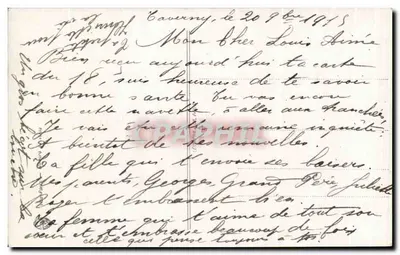 Taverny, le 20 9bre 1915
Mon Cher Louis Aimé
Bien reçu aujourd'hui ta carte
du 18, suis heureuse de te savoir
en bonne santé. Tu vas encore
faire cette navette d'aller aux tranchées
Je vais être inquiète
A bientot de tes nouvelles.
Ta fille qui t'envoie des baisers
Mes parents, Georges, Grand Père, Juliette
Roger t'embrassent bien.
Ta femme qui t'aime de tout son
cœur et t'embrasse beaucoup de fois
celle qui pense toujours à toi
Un gros
CPARAMA